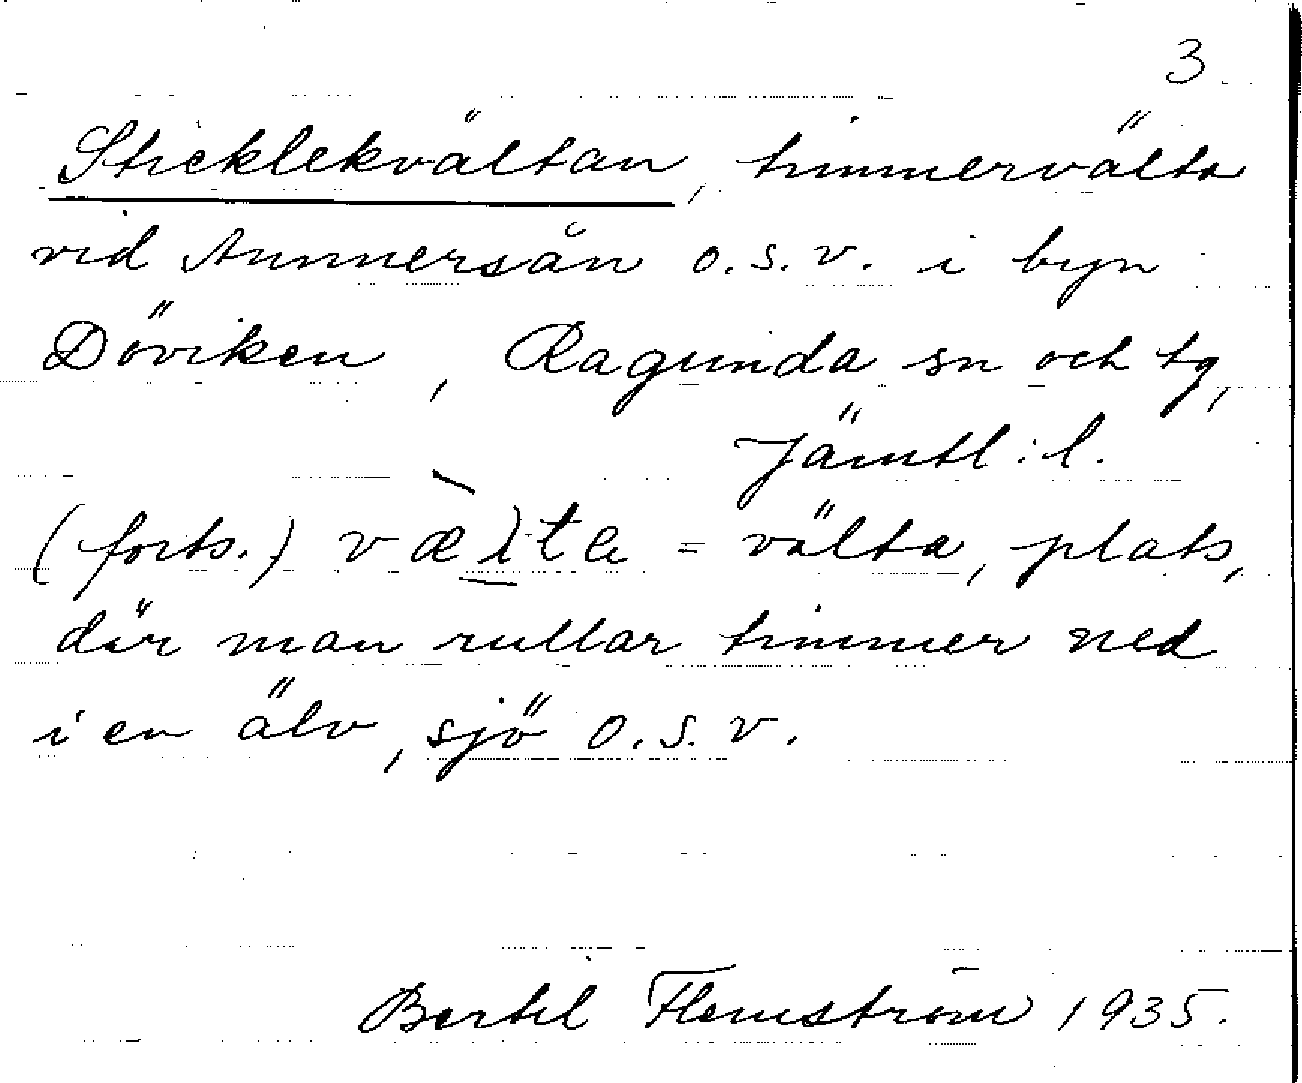 3
Sticklekvältan, timmervälta
vid Ammersån o.s.v. i byn
Döviken, Ragunda sn och tg,
Jämtl:l.
(forts.) = välta, plats,
där man rullar timmer ned
i en älv, sjö o.s.v.
Bertil Flemström 1935.